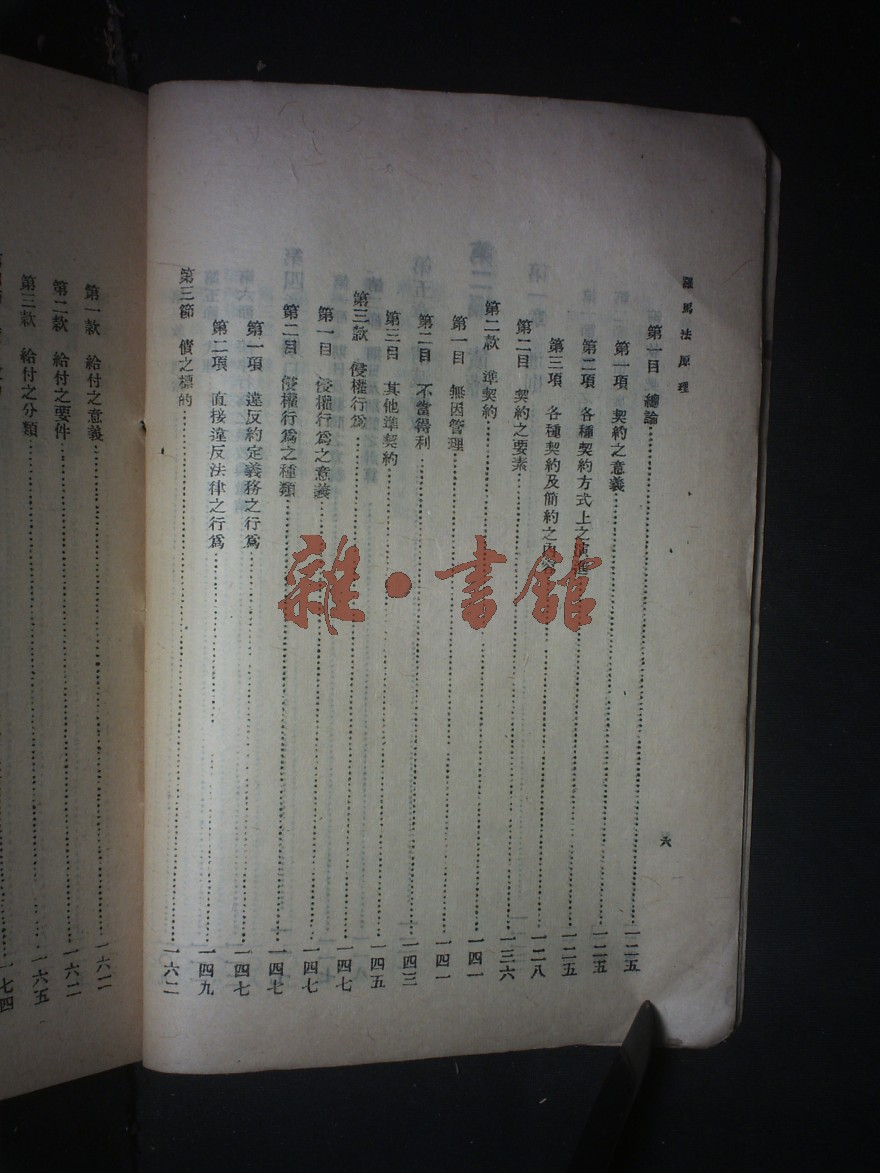 羅馬法原理
六
第一目 總論……一二五
第一項 契約之意義……一二五
第二項 各種契約方式上之演進……一二五
第三項 各種契約及簡約之內容……一二八
第二目 契約之要素……一三六
第二款 準契約……一四一
第一目 無因管理……一四一
第二目 不當得利……一四三
第三目 其他準契約……一四五
第三款 侵權行爲……一四七
第一目 侵權行爲之意義……一四七
第二目 侵權行爲之種類……一四七
第一項 違反約定義務之行爲……一四七
第二項 直接違反法律之行爲……一四九
第三節 債之標的……一六二
第一款 給付之意義……一六二
第二款 給付之要件……一六二
第三款 給付之分類……一六五
一七四
雜·書館